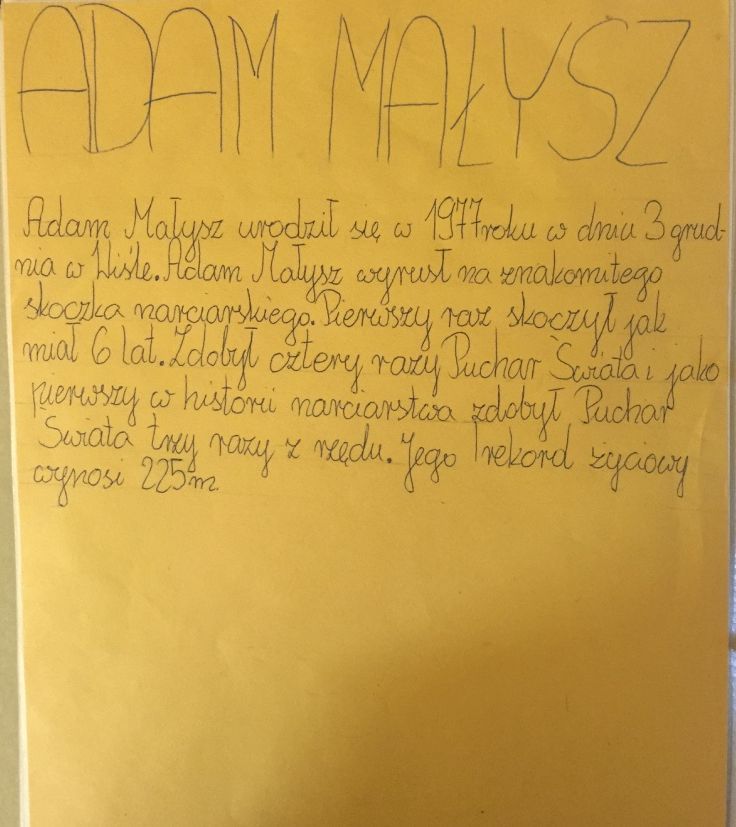 ADAM MAŁYSZ
Adam Małysz urodził się w 1977 roku w dniu 3 grud-
nia w Wiśle. Adam Małysz wyrusł na znakomitego
skoczka narciarskiego. Pierwszy raz skoczył jak
miał 6 lat. Zdobył cztery razy Puchar Świata i jako
pierwszy w historii narciarstwa zdobył Puchar
Świata trzy razy z rzędu. Jego rekord życiowy
wynosi 225m.